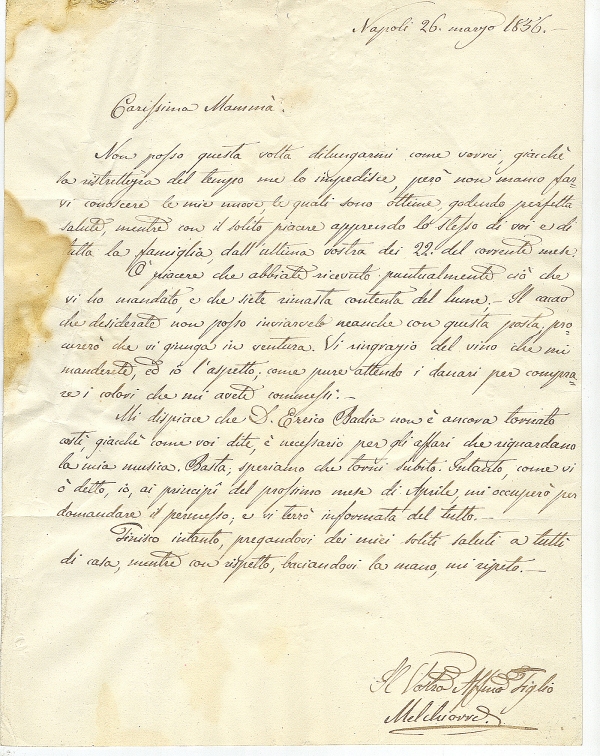 Napoli 26. marzo 1856.—
Carissima Mammà.
Non posso questa volta dilungarmi come vorrei, giacchè
la ristrettezza del tempo me lo impedisce, però non manco far-
vi conoscere le mie nuove, le quali sono ottime, godendo perfetta
salute, mentre con il solito piacere apprendo lo stesso di voi e di
tutta la famiglia dall'ultima vostra dei 22. del corrente mese.
Ò piacere che abbiate ricevuto puntualmente ciò che
vi ho mandato, e che siete rimasta contenta del lume.— Il
che desiderate non posso inviarvelo neanche con questa posta, pro-
curerò che vi giunga in ventura. Vi ringrazio del vino che mi
manderete, ed io l'aspetto; come pure attendo i danari per compra-
re i colori che mi avete commessi.—
Mi dispiace che D. Errico Badia non è ancora tornato
costì, giacchè come voi dite, è necessario per gli affari che riguardano
la mia musica. Basta, speriamo che torni subito. Intanto, come vi
ò detto, io, ai principî del prossimo mese di Aprile, mi occuperò per
domandare il permesso, e vi terrò informata del tutto.—
Finisco intanto, pregandovi dei miei soliti saluti a tutti
di casa, mentre con rispetto, baciandovi la mano, mi ripeto.—
Il Vostro Affmo Figlio
Melchiorre.